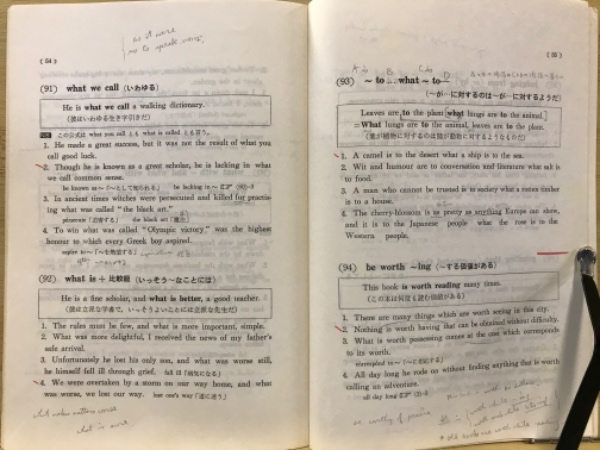 so to speak
( 54 )
(91) what we call (いわゆる)
He is what we call a walking dictionary.
(彼はいわゆる生き字引きだ)
この公式は what you call とも what is called とも言う。
1. He made a great success, but it was not the result of what you
call good luck.
2. Though he is known as a great scholar, he is lacking in what
we call common sense.
be known as ~「~として知られる」 be lacking in ~
3. In ancient times witches were persecuted and killed for practis-
ing what was called "the black art."
persecute「迫害する」 the black art「魔法」
4. To win what was called "Olympic victory" was the highest
honour to which every Greek boy aspired.
aspire to ~「~を熱望する」
(92) what is + 比較級 (いっそう~なことには)
He is a fine scholar, and what is better, a good teacher.
(彼は立派な学者で、いっそうよいことには立派な先生だ)
1. The rules must be few, and what is more important, simple.
2. What was more delightful, I received the news of my father's
safe arrival.
3. Unfortunately he lost his only son, and what was worse still,
he himself fell ill through grief. fall ill「病気になる」
4. We were overtaken by a storm on our way home, and what
was worse, we lost our way. lose one's way「道に迷う」
what makes matters worse
what is more
( 55 )
(93) ~ to … what ~ to …
(~が…に対するのは~が…に対するようだ)
Leaves are to the plant what lungs are to the animal.
= What lungs are to the animal, leaves are to the plant.
(葉が植物に対するのは肺が動物に対するようなものだ)
1. A camel is to the desert what a ship is to the sea.
2. Wit and humour are to conversation and literature what salt is
to food.
3. A man who cannot be trusted is to society what a rotten timber
is to a house.
4. The cherry-blossom is as pretty as anything Europe can show,
and it is to the Japanese people what the rose is to the
Western people.
(94) be worth ~ing (~する価値がある)
This book is worth reading many times.
(この本は何度も読む価値がある)
1. There are many things which are worth seeing in this city.
2. Nothing is worth having that can be obtained without difficulty.
3. What is worth possessing comes at the cost which corresponds
to its worth.
correspond to ~「~に相応する」
4. All day long he rode on without finding anything that is worth
calling an adventure.
all day long
be worthy of praise